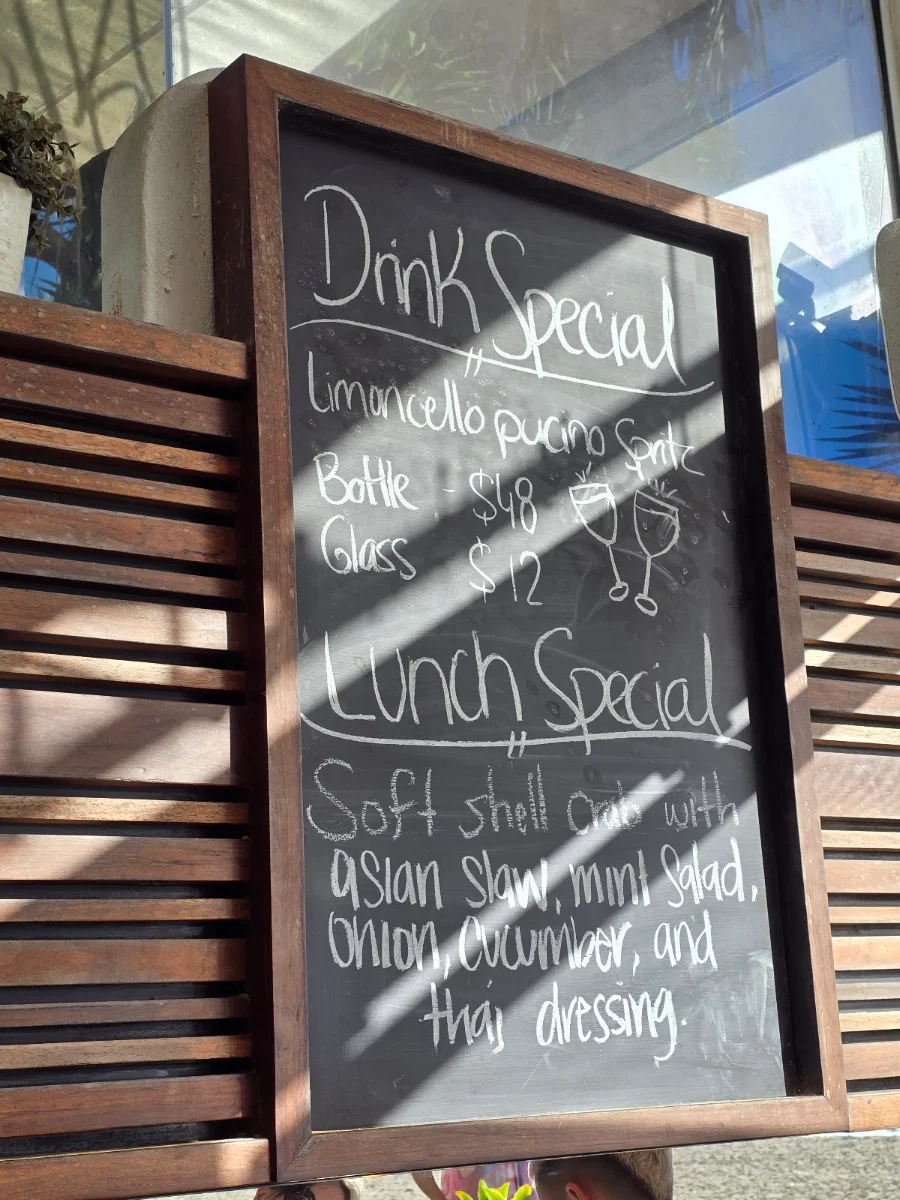 Drink Special
Limoncello pucino Spritz
Bottle - $48
Glass $12
Lunch Special
Soft shell crab with
asian slaw, mint salad,
onion, cucumber, and
thai dressing.